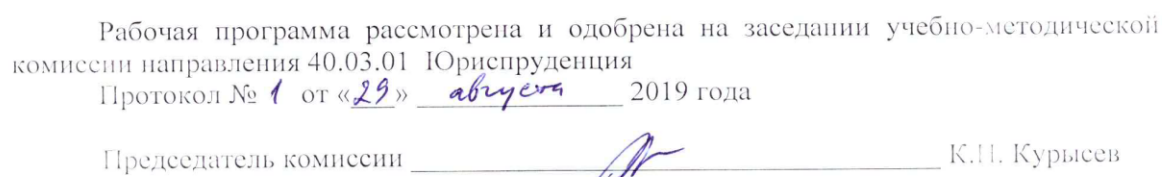 Рабочая программа рассмотрена и одобрена на заседании учебно-методической
комиссии направления 40.03.01 Юриспруденция
Протокол № 1 от «29» августа 2019 года
Председатель комиссии К.И. Курысев